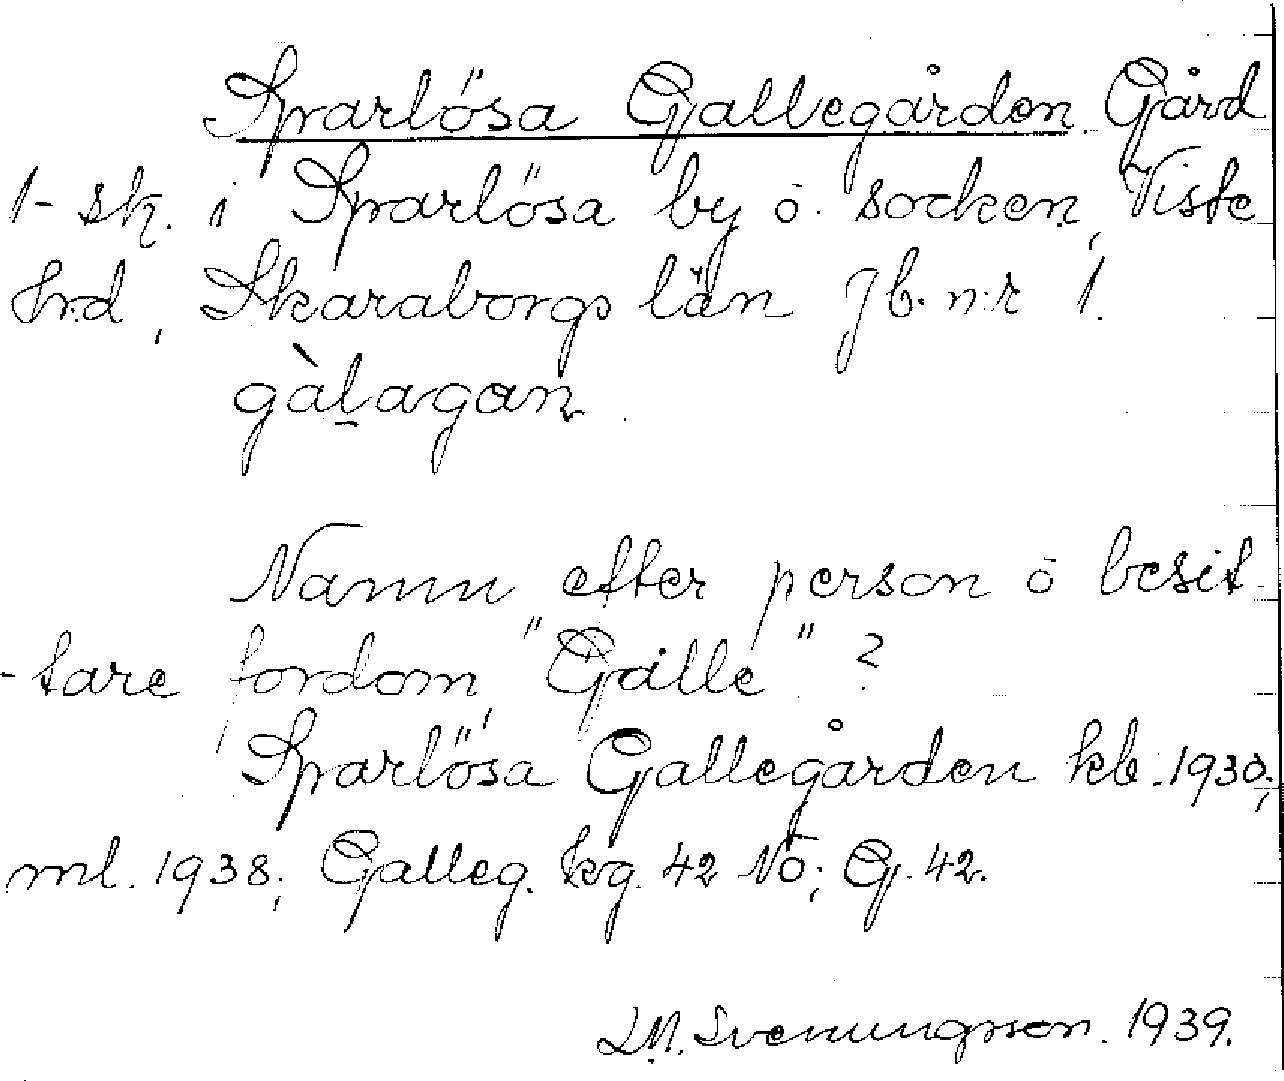 Sparlösa Gallegården. Gård
1- sk. i Sparlösa by o. socken, Viste
hrd, Skaraborgs län Jb. n:r 1.
gàlagan.
Namn efter person o besit
-tare fordom, "Galle" ?
Sparlösa Gallegården kb. 1930;
ml. 1938; Galleg. kg. 42 NO; G. 42.
L.M. Svenungsson. 1939.